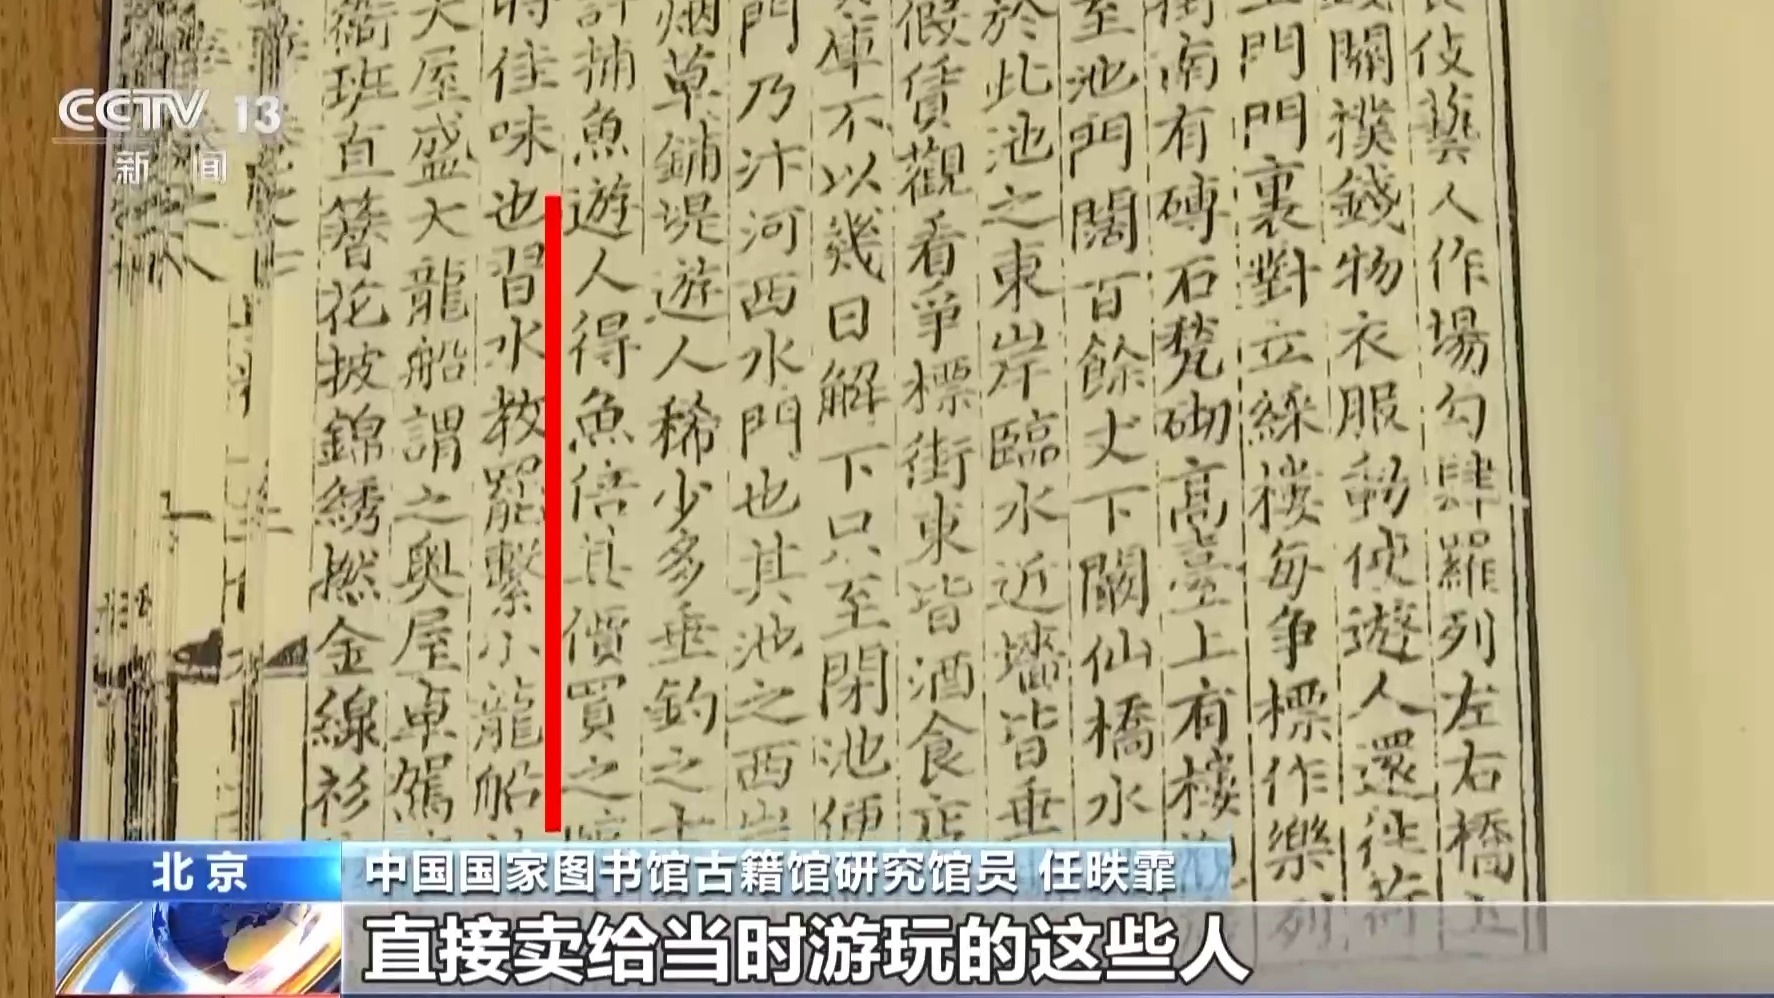 伎藝人作場勾肆羅列左右橋上
關撲錢物衣服動使遊人還往荷
門門裏對立綵樓每爭標作樂列
街南有磚石甃砌高臺上有樓
至池門闊百餘丈下闞仙橋水
於此池之東岸臨水近墻皆垂
假賃觀看爭標街東皆酒食店
庫不以幾日解下只至閉池便
門乃汴河西水門也其池之西岸
烟草鋪堤遊人稀少多垂釣之士
許捕魚遊人得魚倍其價買之
時佳味也習水教罷繫小龍船
大屋盛大龍船謂之奥屋車駕
衙班直簪花披錦綉撚金線衫
CCTV 13
新闻
北京
中国国家图书馆古籍馆研究馆员 任昳霏
直接卖给当时游玩的这些人